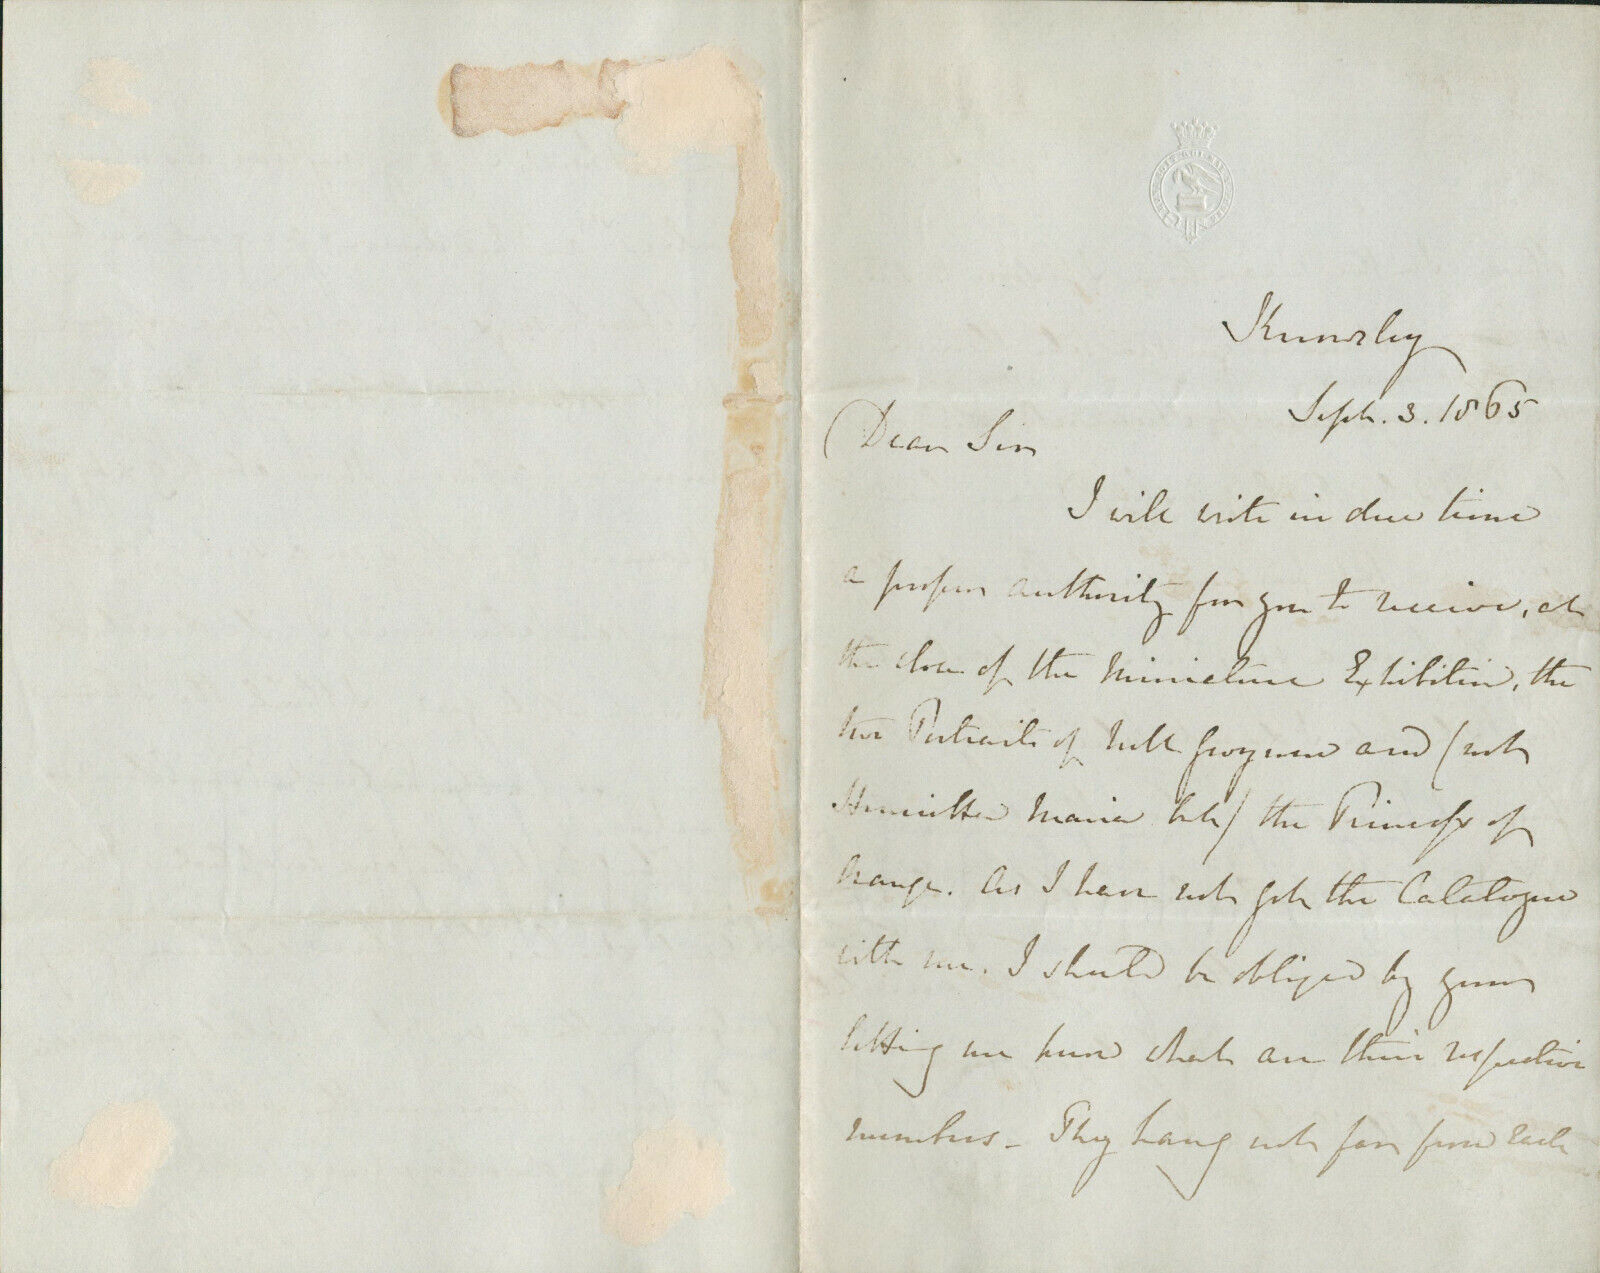 Knowsley
Sept. 3. 1865
Dear Sir
I will write in due time
a proper authority for you to receive, at
the close of the Miniature Exhibition, the
two Portraits of Nell Gwynne and (not
Henrietta Maria but) the Princess of
Orange. As I have not got the Catalogue
with me, I should be obliged by your
letting me know what are their respective
numbers - They hang not far from each